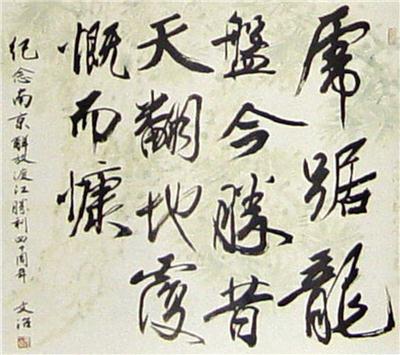 虎踞龍
盤今勝昔
天翻地覆
慨而慷
紀念南京解放渡江勝利四十周年 文治